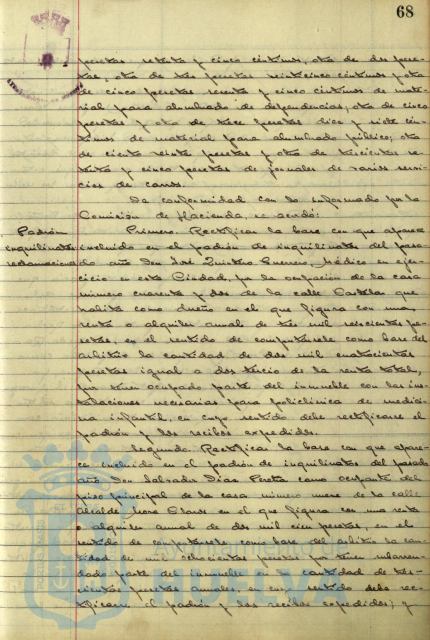 68
pesetas setenta y cinco céntimos, otra de dos pese-
tas, otra de tres pesetas veinticinco céntimos y otra
de cinco pesetas sesenta y cinco céntimos de mate-
rial para alumbrado de dependencias; otra de cinco
pesetas y otra de trece pesetas diez y siete cén-
timos de material para alumbrado público; otra
de ciento veinte pesetas y otra de trescientas se-
tenta y cinco pesetas de jornales de varios servi-
cios de carros.
De conformidad con lo informado por la
Comisión de Hacienda, se acordó:
Padrón
inquilinatos
reclamaciones
Primero. Rectificar la base con que aparece
incluido en el padrón de inquilinatos del pasa-
do año Don José Quintero Guerrero, Médico en ejer-
cicio en esta Ciudad, por la ocupación de la casa
número cuarenta y dos de la calle Castelar que
habita como dueño en el que figura con una
renta o alquiler anual de tres mil seiscientas pe-
setas, en el sentido de computársele como base del
arbitrio la cantidad de dos mil cuatrocientas
pesetas igual a dos tercios de la renta total,
por tener ocupado parte del inmueble con las ins-
talaciones necesarias para policlínica de medici-
na infantil, en cuyo sentido debe rectificarse el
padrón y los recibos expedidos.
Segundo. Rectificar la base con que apare-
ce incluido en el padrón de inquilinatos del pasado
año Don Salvador Díaz como ocupante del
piso principal de la casa número nueve de la calle
Alcalde Mora Claros en el que figura con una renta
o alquiler anual de dos mil cien pesetas, en el
sentido de computársele como base del arbitrio la can-
tidad de mil ochocientas pesetas por tener subarren-
dado parte del inmueble en la cantidad de tres-
cientas pesetas anuales, en cuyo sentido debe rec-
tificarse el padrón y los recibos expedidos; y